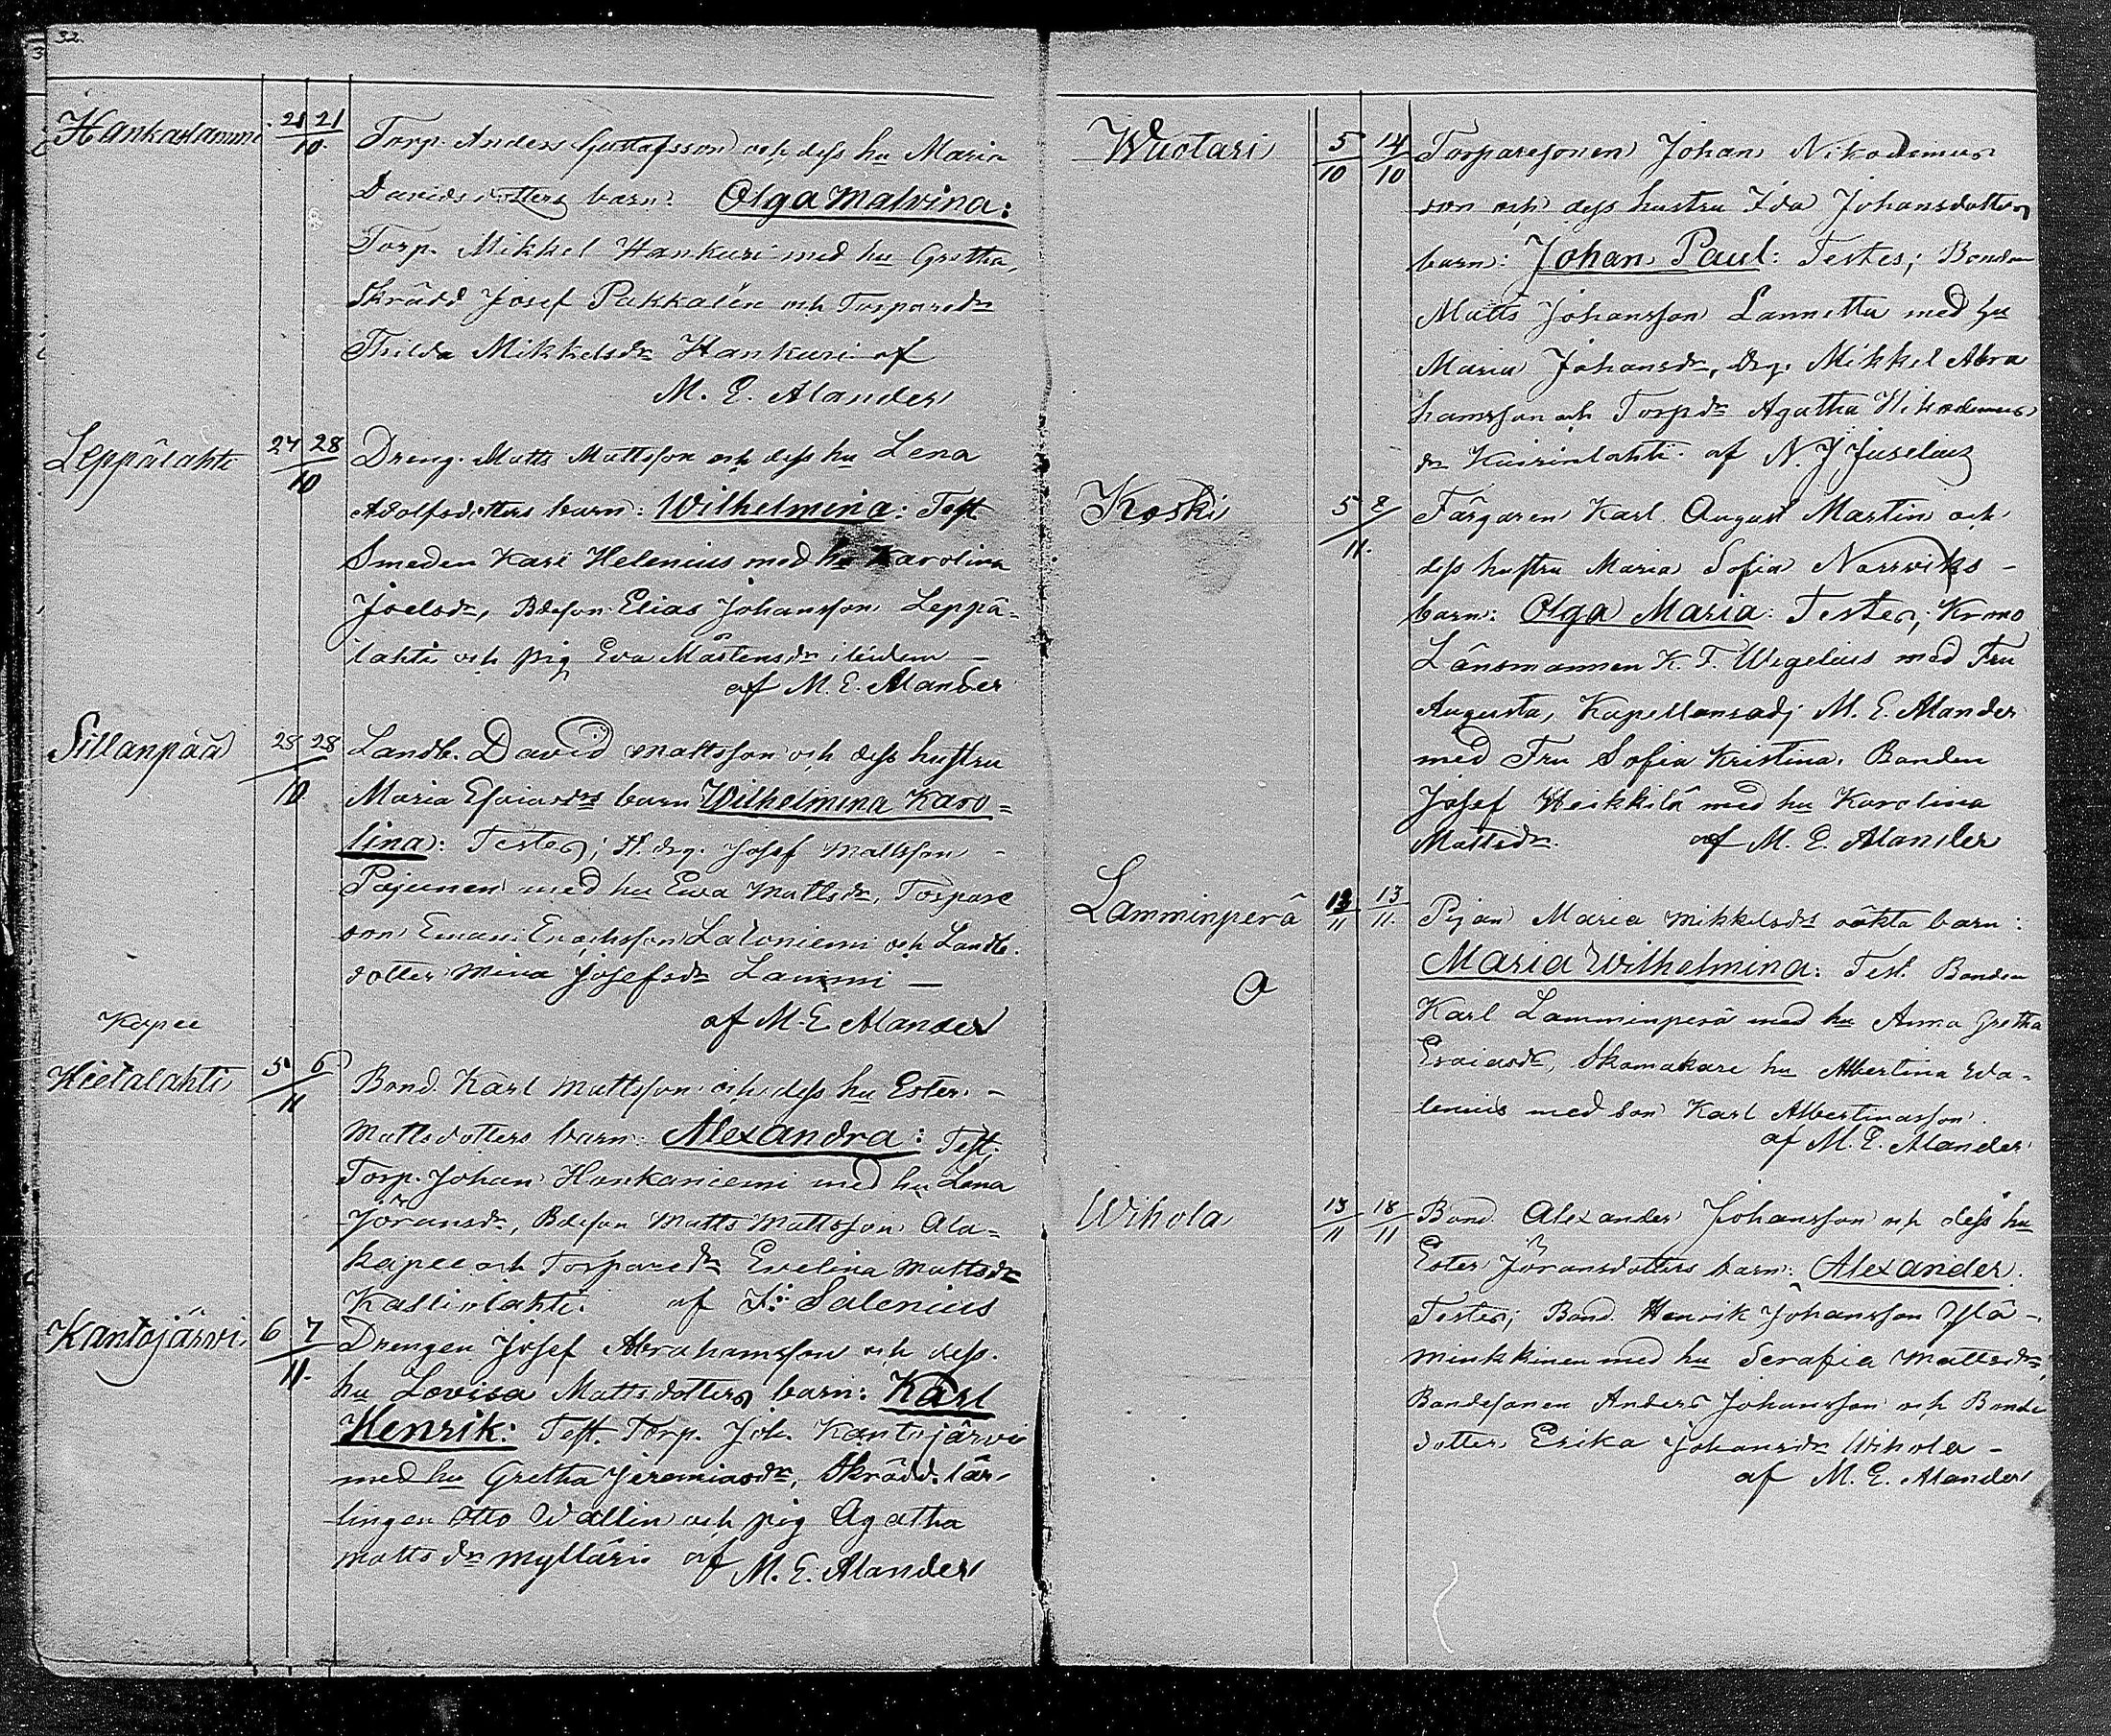 32.
Hankaslammi 21 21/10. Torp. Anders Gustafsson och dess hu Maria
Davidsdotters barn: Olga Malvina:
Torp. Mikkel Hankuri med hu Gretha,
Skrädd Josef Pakkalén och Torparedr
Thilda Mikkelsdr Hankuri af
M. E. Alander
Leppälahti 27 28/10 Dreng. Matts Mattsson och dess hu Lena
Adolfsdotters barn: Wilhelmina: Test.
Smeden Karl Helenius med hu Karolina
Joelsdr, Bdeson Elias Johansson Leppä-
lahti och pig Eva Mårtensdr ibidem
af M. E. Alander
Sillanpää 28 28/10 Landb. David Mattsson och dess hustru
Maria Esaiasdrs barn Wilhelmina Karo=
lina: Testes; H. drg. Josef Mattsson
Pajunen med hu Ewa Mattsdr, Torpare
son Enochsson Latoniemi och Landb.
dotter Mina Josefsdr Lammi —
af M. E. Alander
Kapee
Hietalahti 5 6/11 Bond. Karl Mattsson och dess hu Ester. -
Mattsdotters barn: Alexandra: Test.
Torp. Johan Honkaniemi med hu Lena
Jöransdr, Bdeson Matts Mattsson Ala=
kapee och Torparedr Evelina Mattsdr
Kalliolahti. af F. Salenius
Kantojärvi 6 7/11. Drengen Josef Abrahamsson och dess.
hu Lovisa Mattsdotters barn: Karl
Henrik: Test. Torp. Joh. Kantojärvi
med hu Gretha Jeremiasdr, Skrädd. lär-
lingen Otto Wallin och pig Agatha
Mattsdr Mylläri af M. E. Alander
Wuotari 5/10 14/10 Torparesonen Johan Nikodemus
son och dess hustru Ida Johansdotters
barn: Johan Paul: Testes; Bonden
Matts Johansson Lannetta med hu
Maria Johansdr, Drg. Mikkel Abra
hamsson och Torpdr Agatha Nikodemus
dr Kuirinlahti. af N. J Juselius
Koski 5 8/11. Färgaren Karl August Martin och
dess hustru Maria Sofia Norrviks -
barn: Olga Maria: Testes; Krono
Länsmannen K. F. Wegelius med Fru
Augusta, Kapellansadj M. E. Alander
med Fru Sofia Kristina, Bonden
Josef Heikkilä med hu Karolina
Mattsdr. af M. E. Alander
Lamminperä 13/11 13/11. Pigan Maria Mikkelsdrs oäkta barn:
O Maria Wilhelmina: Test. Bonden
Karl Lamminperä med hu Anna Gretha
Esaiasdr, Skomakare hu Albertina Wa-
lenius med son Karl Albertinasson.
af M. E. Alander
Wihola 13/11 18/11 Bond. Alexander Johansson och dess hu
Ester Jöransdotters barn: Alexander.
Testes; Bond. Henrik Johansson Ylä-
minkkinen med hu Serafia Mattsdr,
Bondesonen Anders Johansson och Bonde
dotter Erika Johansdr Wihola -
af M. E. Alander